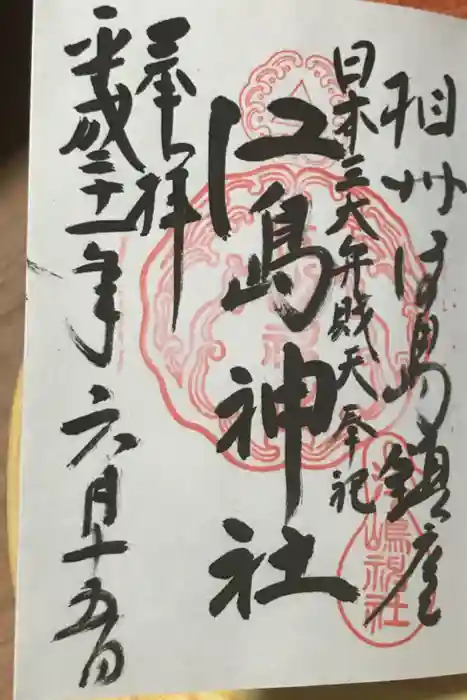 相州江島鎮座
日本三大弁財天奉祀
江島神社
奉拝
平成二十一年六月十五日
江嶋神社